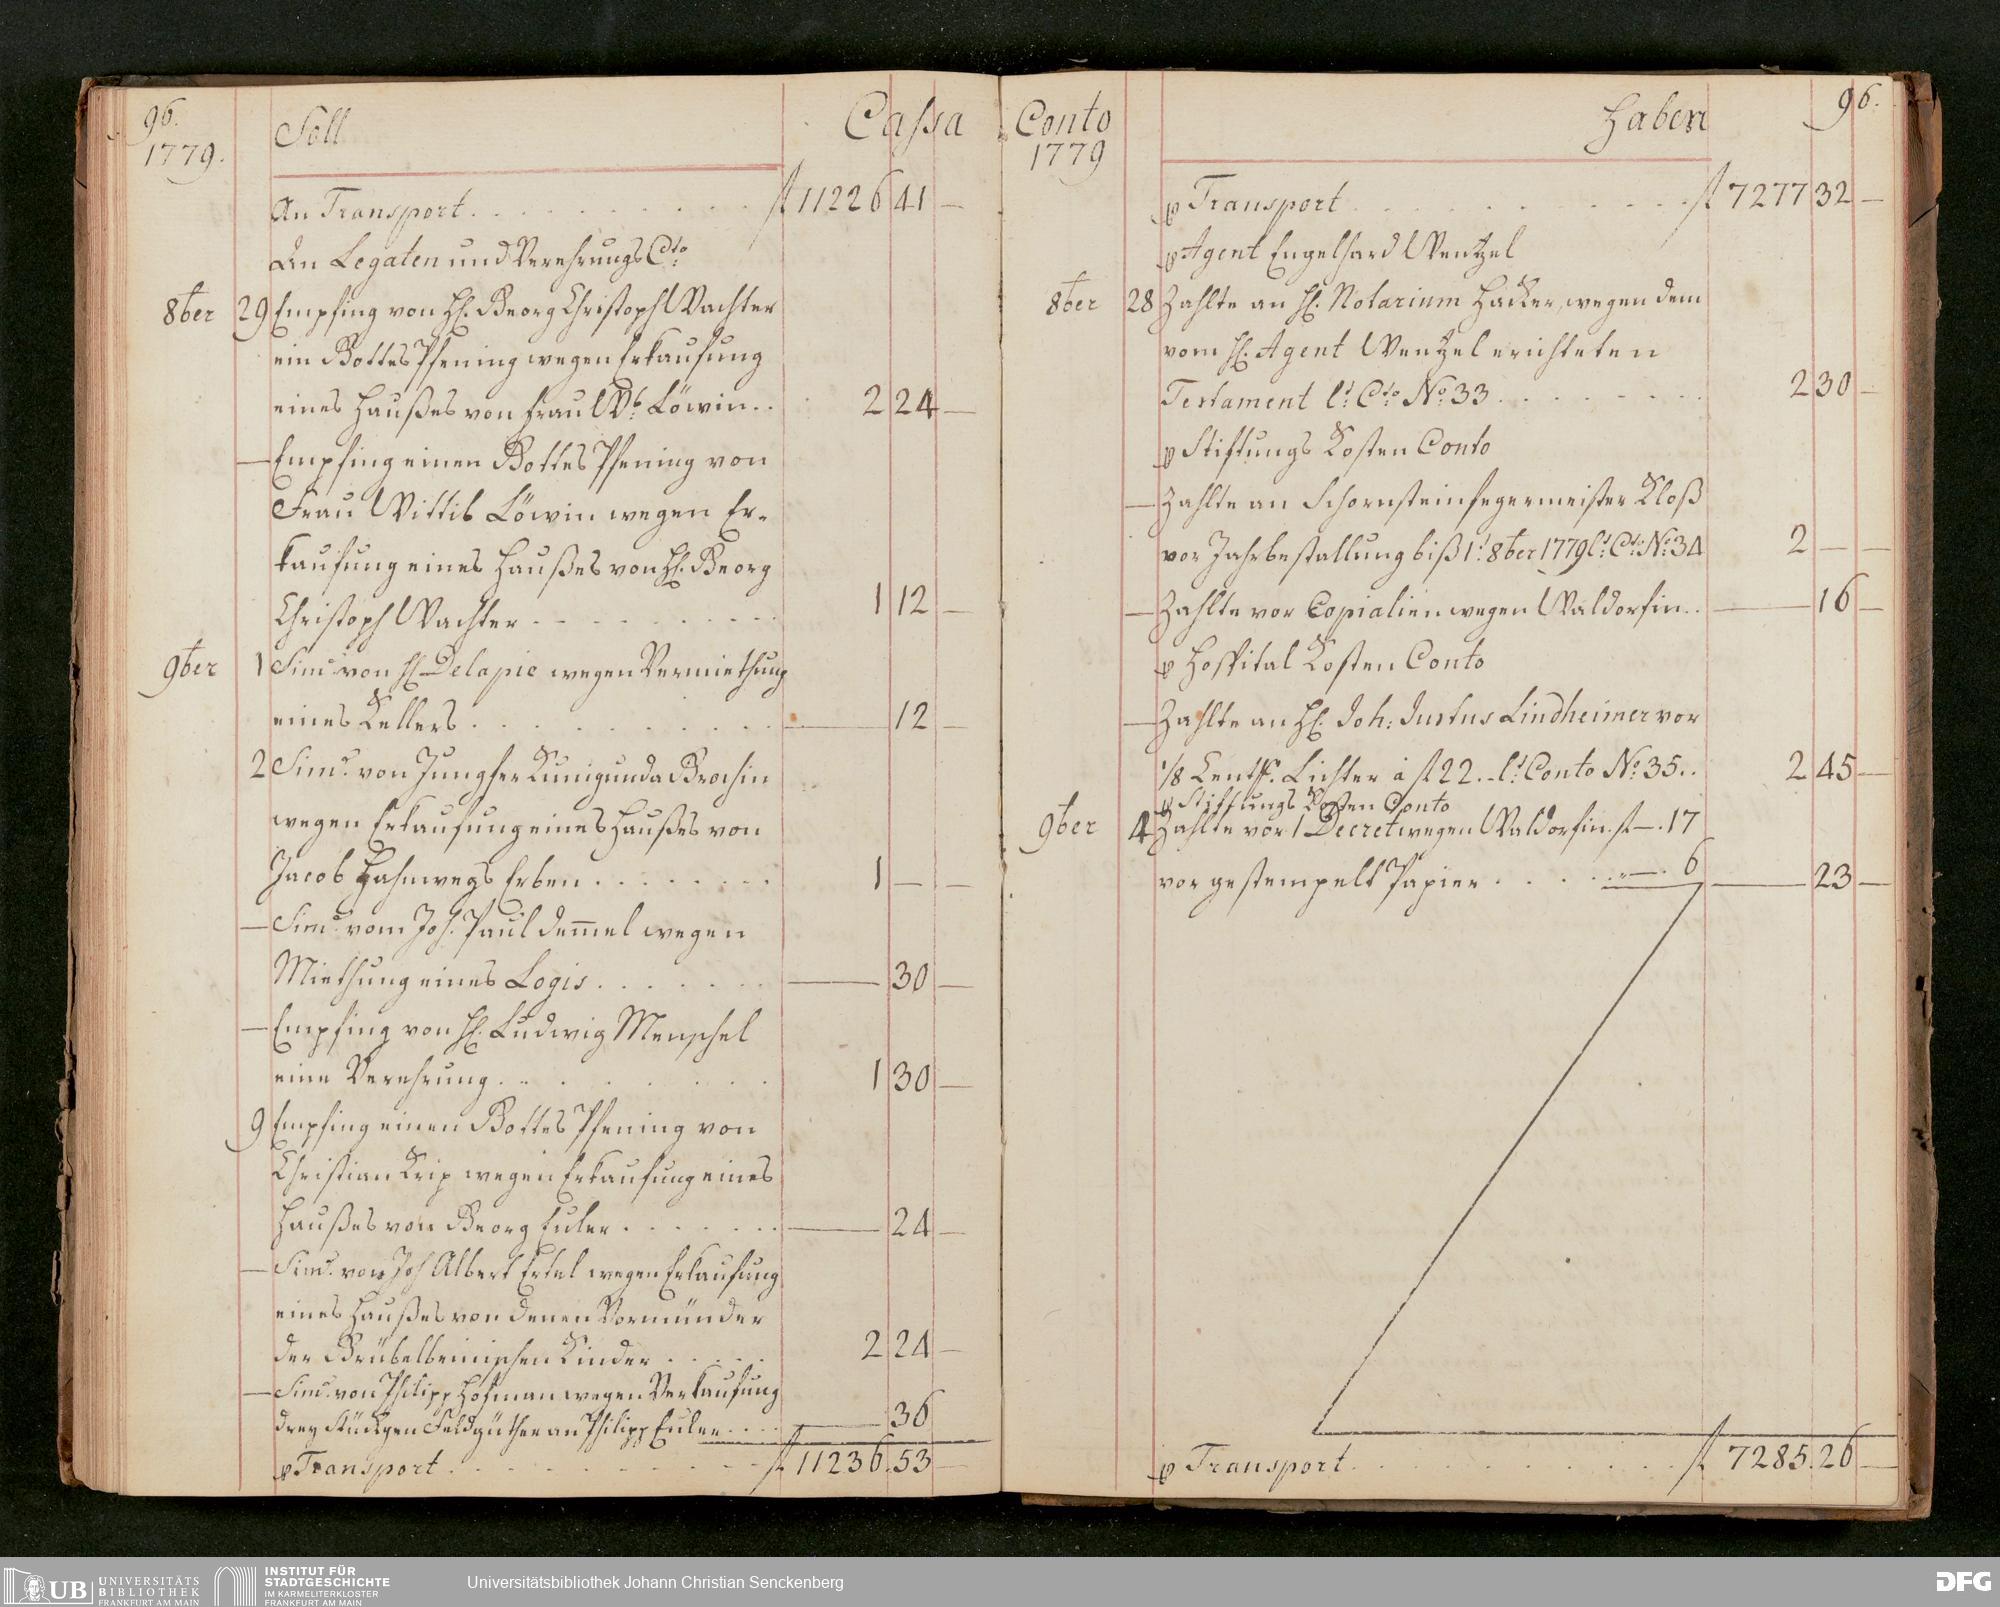 96.
1779.
Soll
Cassa
An Transport . . . . . . . . . . fl 11226 41 —
An Legaten und Verehrungs Cto
8ber 29 Empfing von H. Georg Christoph Wachter
ein Gottes Pfening wegen Erkaufung
eines Haußes von Frau Wb. Löwin . . 2 24 —
— Empfing einen Gottes Pfening von
Frau Wittib Löwin wegen Er-
kaufung eines Haußes von H. Georg
Christoph Wachter . . . . . . . . . 1 12 —
9ber 1 Simi: von H. Delapie wegen Vermiethung
eines Kellers . . . . . . . . . — 12 —
2 Simi: von Jungfer Kunigunda Brochin
wegen Erkaufung eines Haußes von
Jacob Hahnwegs Erben . . . . . . . 1 — —
— Simi: vom Joh. Paul Demmel wegen
Miethung eines Logis . . . . . . — 30 —
— Empfing von H. Ludwig Menschel
eine Verehrung . . . . . . . . 1 30 —
9 Empfing einen Gottes Pfening von
Christian Krip wegen Erkaufung eines
Haußes von Georg Euler . . . . . . — 24 —
— Simi: von Joh Albert Ertel wegen Erkaufung
eines Haußes von denen Vormünder
der Grübelbeinischen Kinder . . . . . 2 24 —
— Simi: von Philipp Hofman wegen Verkaufung
drey Stückgen Feldgüther an Philipp Euler . . . — 36
p Transport . . . . . . . . . fl 11236. 53 —
Conto
1779
Haben
96.
p Transport . . . . . . . . . fl 7277 32 —
p Agent Engelhard Wentzel
8ber 28 Zahlte an H. Notarium Hacker, wegen dem
vom H. Agent Wentzel erichteten
Testament lt. Cto No. 33 . . . . . . . 2 30 —
p Stiftungs Kosten Conto
— Zahlte an Schornsteinfegermeister Kloß
vor Jahrbestallung biß 1t. 8ber 1779 lt. Cto No. 34 2 — —
— Zahlte vor Copialien wegen Waldorfin . . — 16 —
p Hospital Kosten Conto
— Zahlte an H. Joh: Justus Lindheimer vor
1/8 Centr. Lichter à fl 22. – lt. Conto No. 35 . . 2 45 —
p Stiftungs Kosten Conto
9ber 4 Zahlte vor 1 Decret wegen Waldorfin . fl — . 17
vor gestempelt Papier . . . . . „ — . 6 — 23 —
p Transport . . . . . . . . . fl 7285. 26 —
UB UNIVERSITÄTS
BIBLIOTHEK
FRANKFURT AM MAIN
INSTITUT FÜR
STADTGESCHICHTE
IM KARMELITERKLOSTER
FRANKFURT AM MAIN
Universitätsbibliothek Johann Christian Senckenberg
DFG